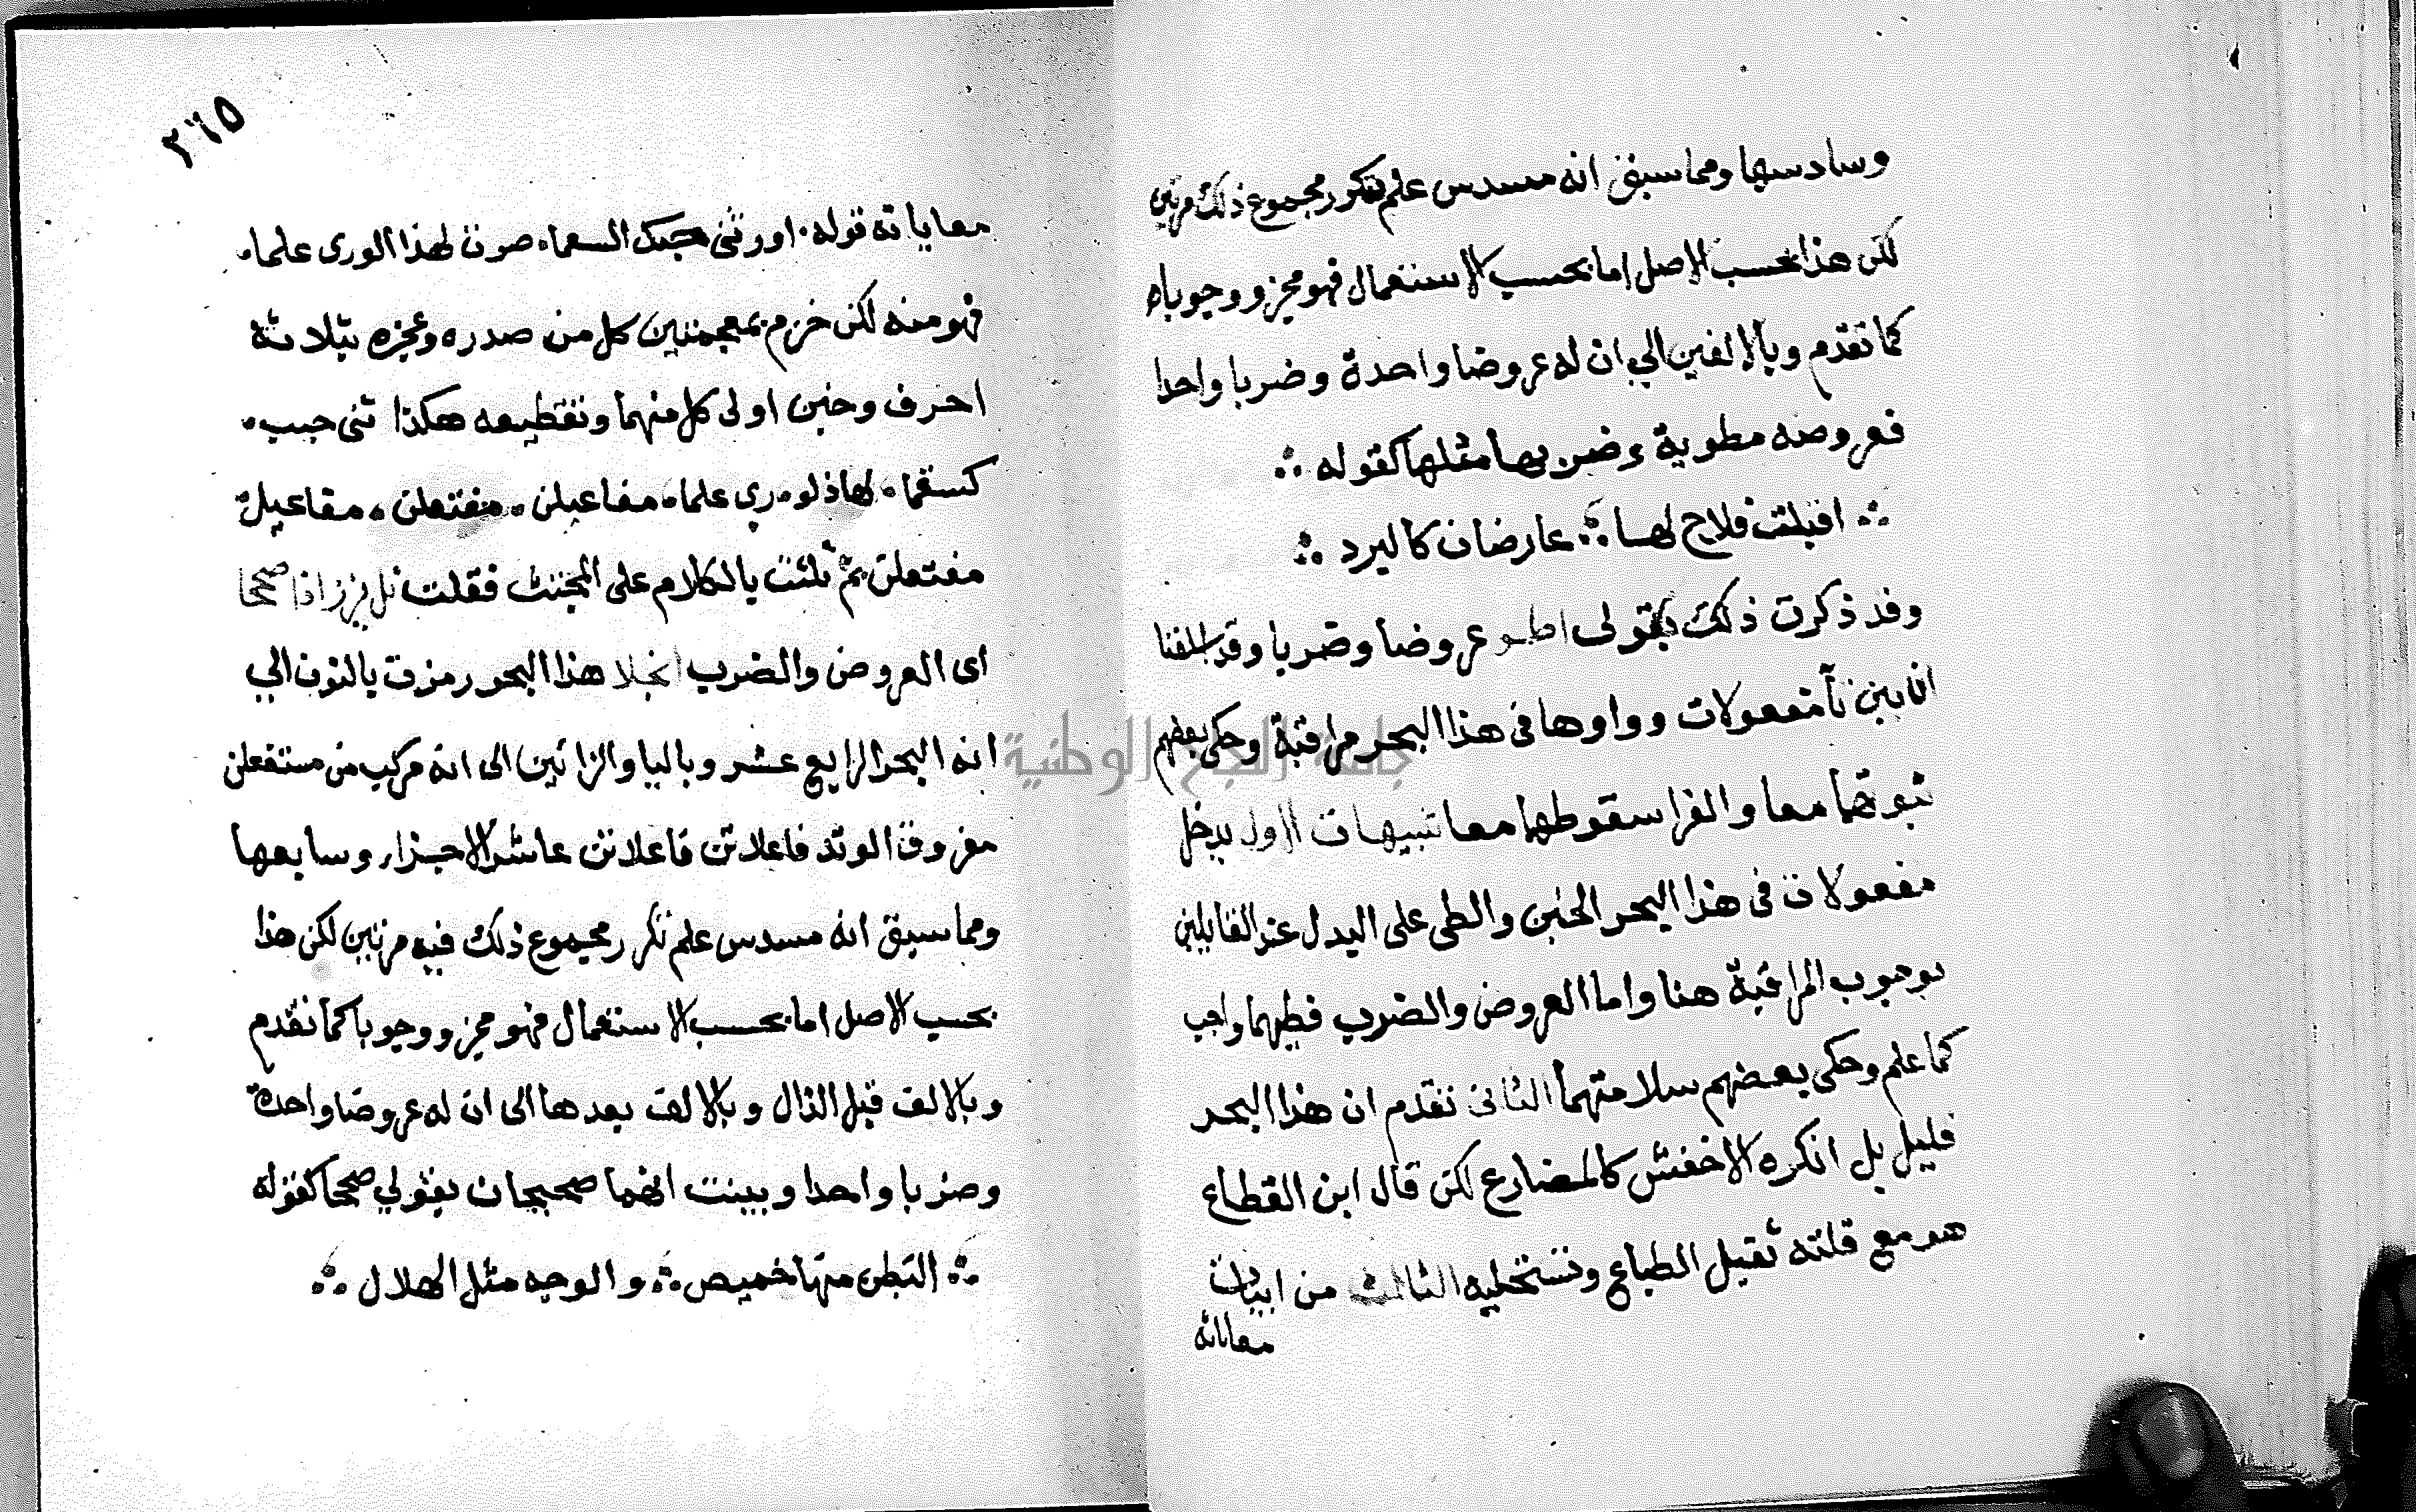 وسادسها ومما سبق انه مسدس علم تكرر مجموع ذلك مرتين
لكن هذا بحسب الاصل اما بحسب الاستعمال فهو مجزو وجوباه
كما تقدم وبالالفين الي ان له عروضا واحدة وضربا واحدا
فعروضه مطوية وضربها مثلها كقوله ∴
∴ اقبلت فلاح لها ∴ عارضان كالبرد ∴
وقد ذكرت ذلك بقولى اطو عروضا وضربا وقد
ان بين فآ مفعولات وواوها فى هذا البحر مراقبة وحكى بعضهم
ثبوتهما معا والفرا سقوطهما معا تنبيهات الاول يدخل
مفعولات فى هذا البحر الخبن والطى على البدل عند القايلين
بوجوب المراقبة هنا واما العروض والضرب فطيهما واجب
كما علم وحكى بعضهم سلامتهما الثانى تقدم ان هذا البحر
قليل بل انكره الاخفش كالمضارع لكن قال ابن القطاع
هو مع قلته ثقيل الطباع وتستحليه الثالث من ابيات
معاياته
٢٦٥
معاياته قوله. اورثنى حبك السقما، صرت لهذا الورى علما،
فهو منه لكن خزم بمعجمتين كل من صدره وعجزه بثلاثة
احرف وخبن اولى كل منهما وتقطيعه هكذا ثنى حبب،
كسقما، لهاذلو، رى علما، مفاعيلن، مفتعلن، مفاعيلن
مفتعلن ثم ثلثت بالكلام على المجتث فقلت صححا
اى العروض والضرب هذا البحر رمزت بالنون الي
انه البحر الرابع عشر وباليا والزائين الى انه مركب من مستفعلن
مفروق الوتد فاعلاتن فاعلاتن عاشر الاجزاء وسابعها
ومما سبق انه مسدس علم تكرر مجموع ذلك فيه مرتين لكن هذا
بحسب الاصل اما بحسب الاستعمال فهو مجزو وجوبا كما تقدم
وبالالف قبل الذال وبالالف بعدها الى ان له عروضا واحدة
وضربا واحدا وبينت انهما صحيحان بقولي صححا كقوله
∴ البطن منها خميص ∴ والوجه مثل الهلال ∴
جامعة النجاح الوطنية